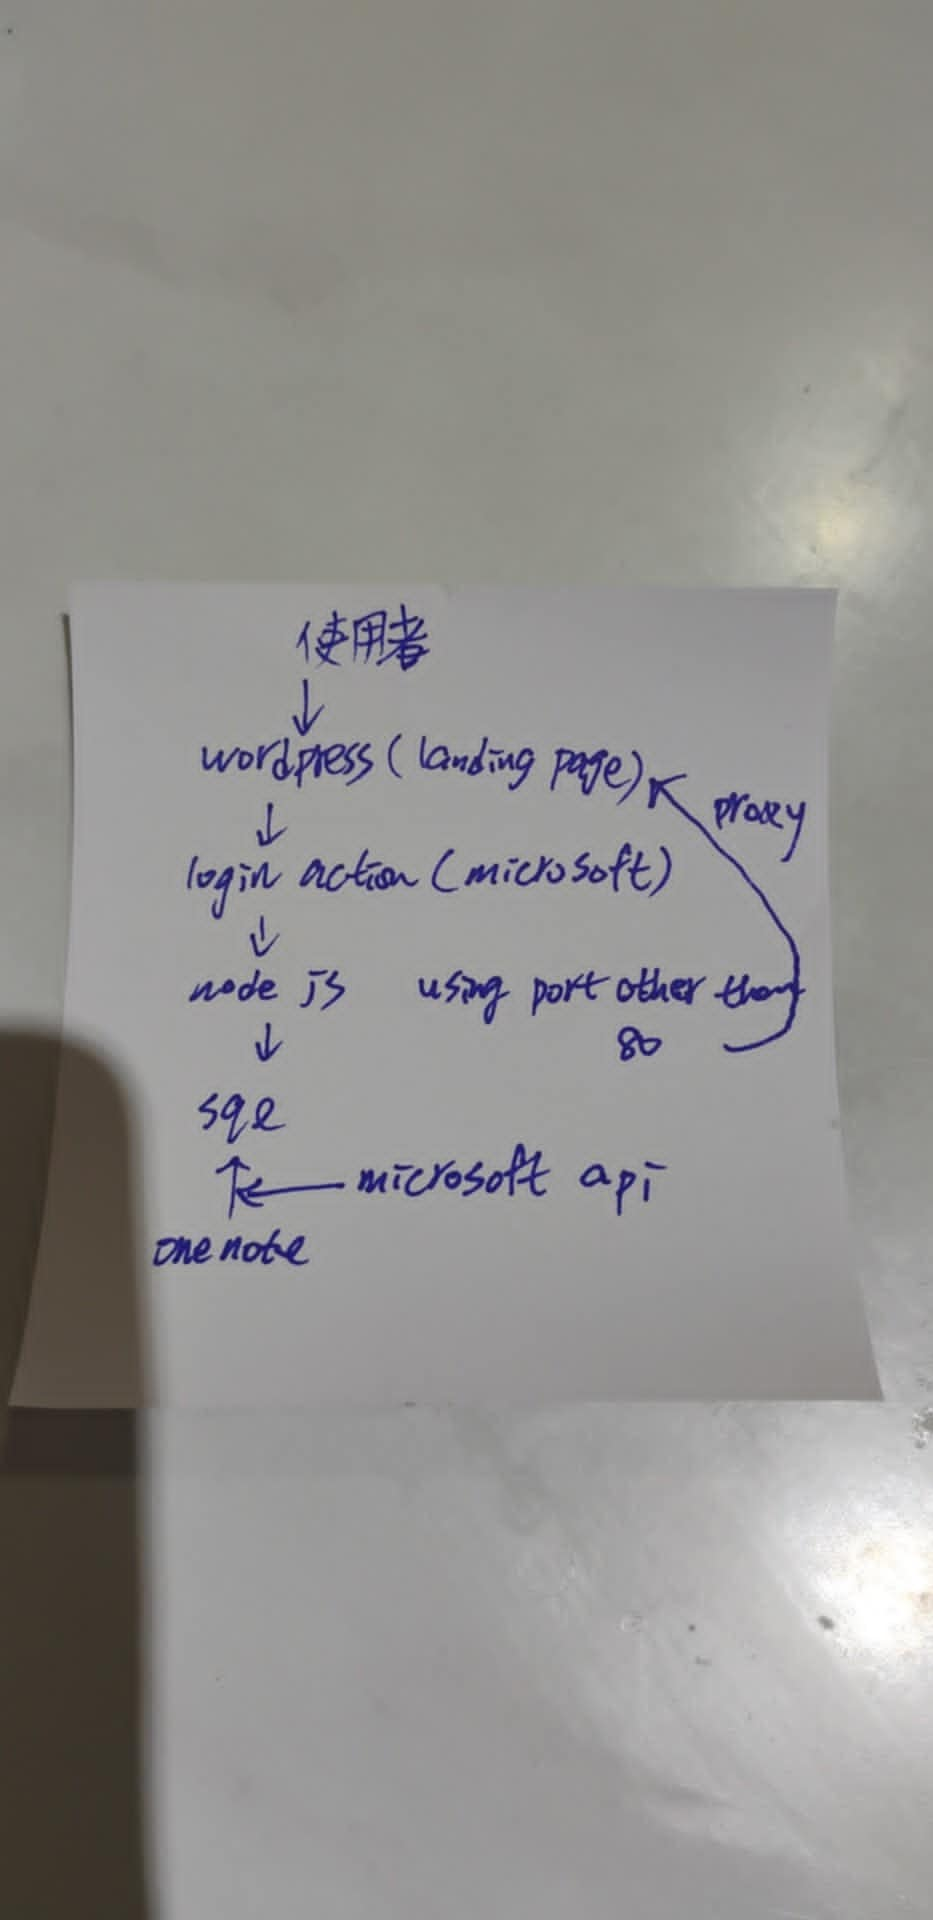 使用者
↓
wordpress (landing page)
proxy
↓
login action (microsoft)
↓
node js using port other than
80
↓
sql
↑ ← microsoft api
onenote